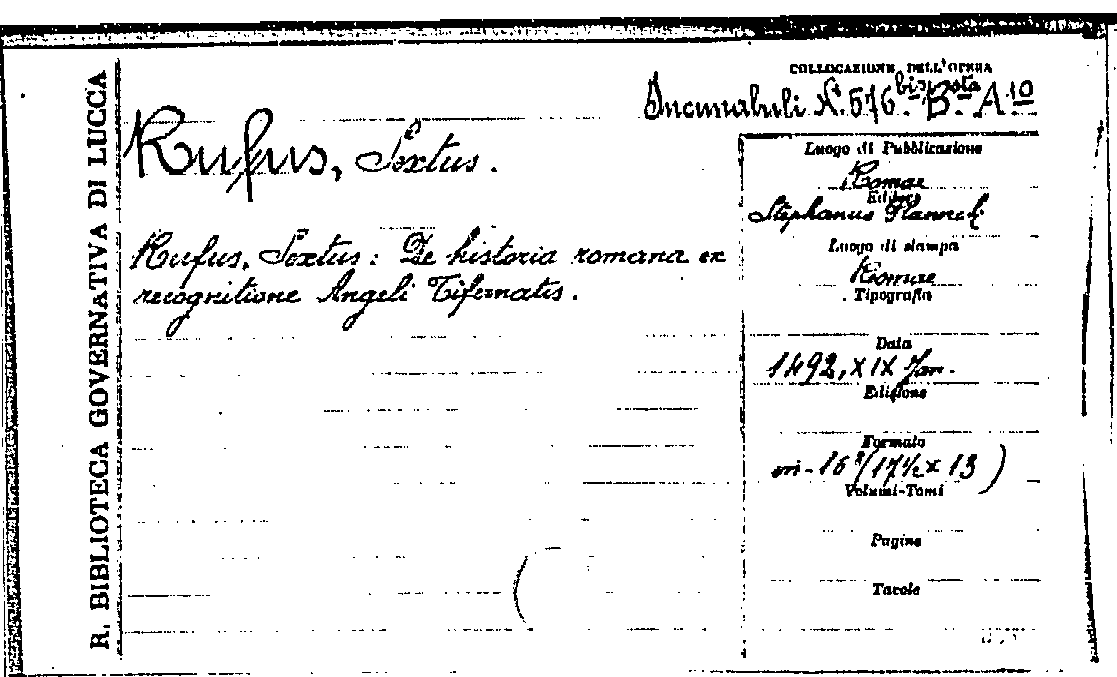 R. BIBLIOTECA GOVERNATIVA DI LUCCA
COLLOCAZIONE DELL'OPERA
Incunabuli N. 576 bis Bta A 10
Rufus, Sextus.
Rufus, Sextus: De historia romana ex
recognitione Angeli Tifernatis.
Luogo di Pubblicazione
Romae
Editore
Stephanus Planneck
Luogo di stampa
Romae
Tipografia
Data
1492, XIX Jan.
Edizione
Formato
in-16°(17½ x 13)
Volumi-Tomi
Pagine
Tavole